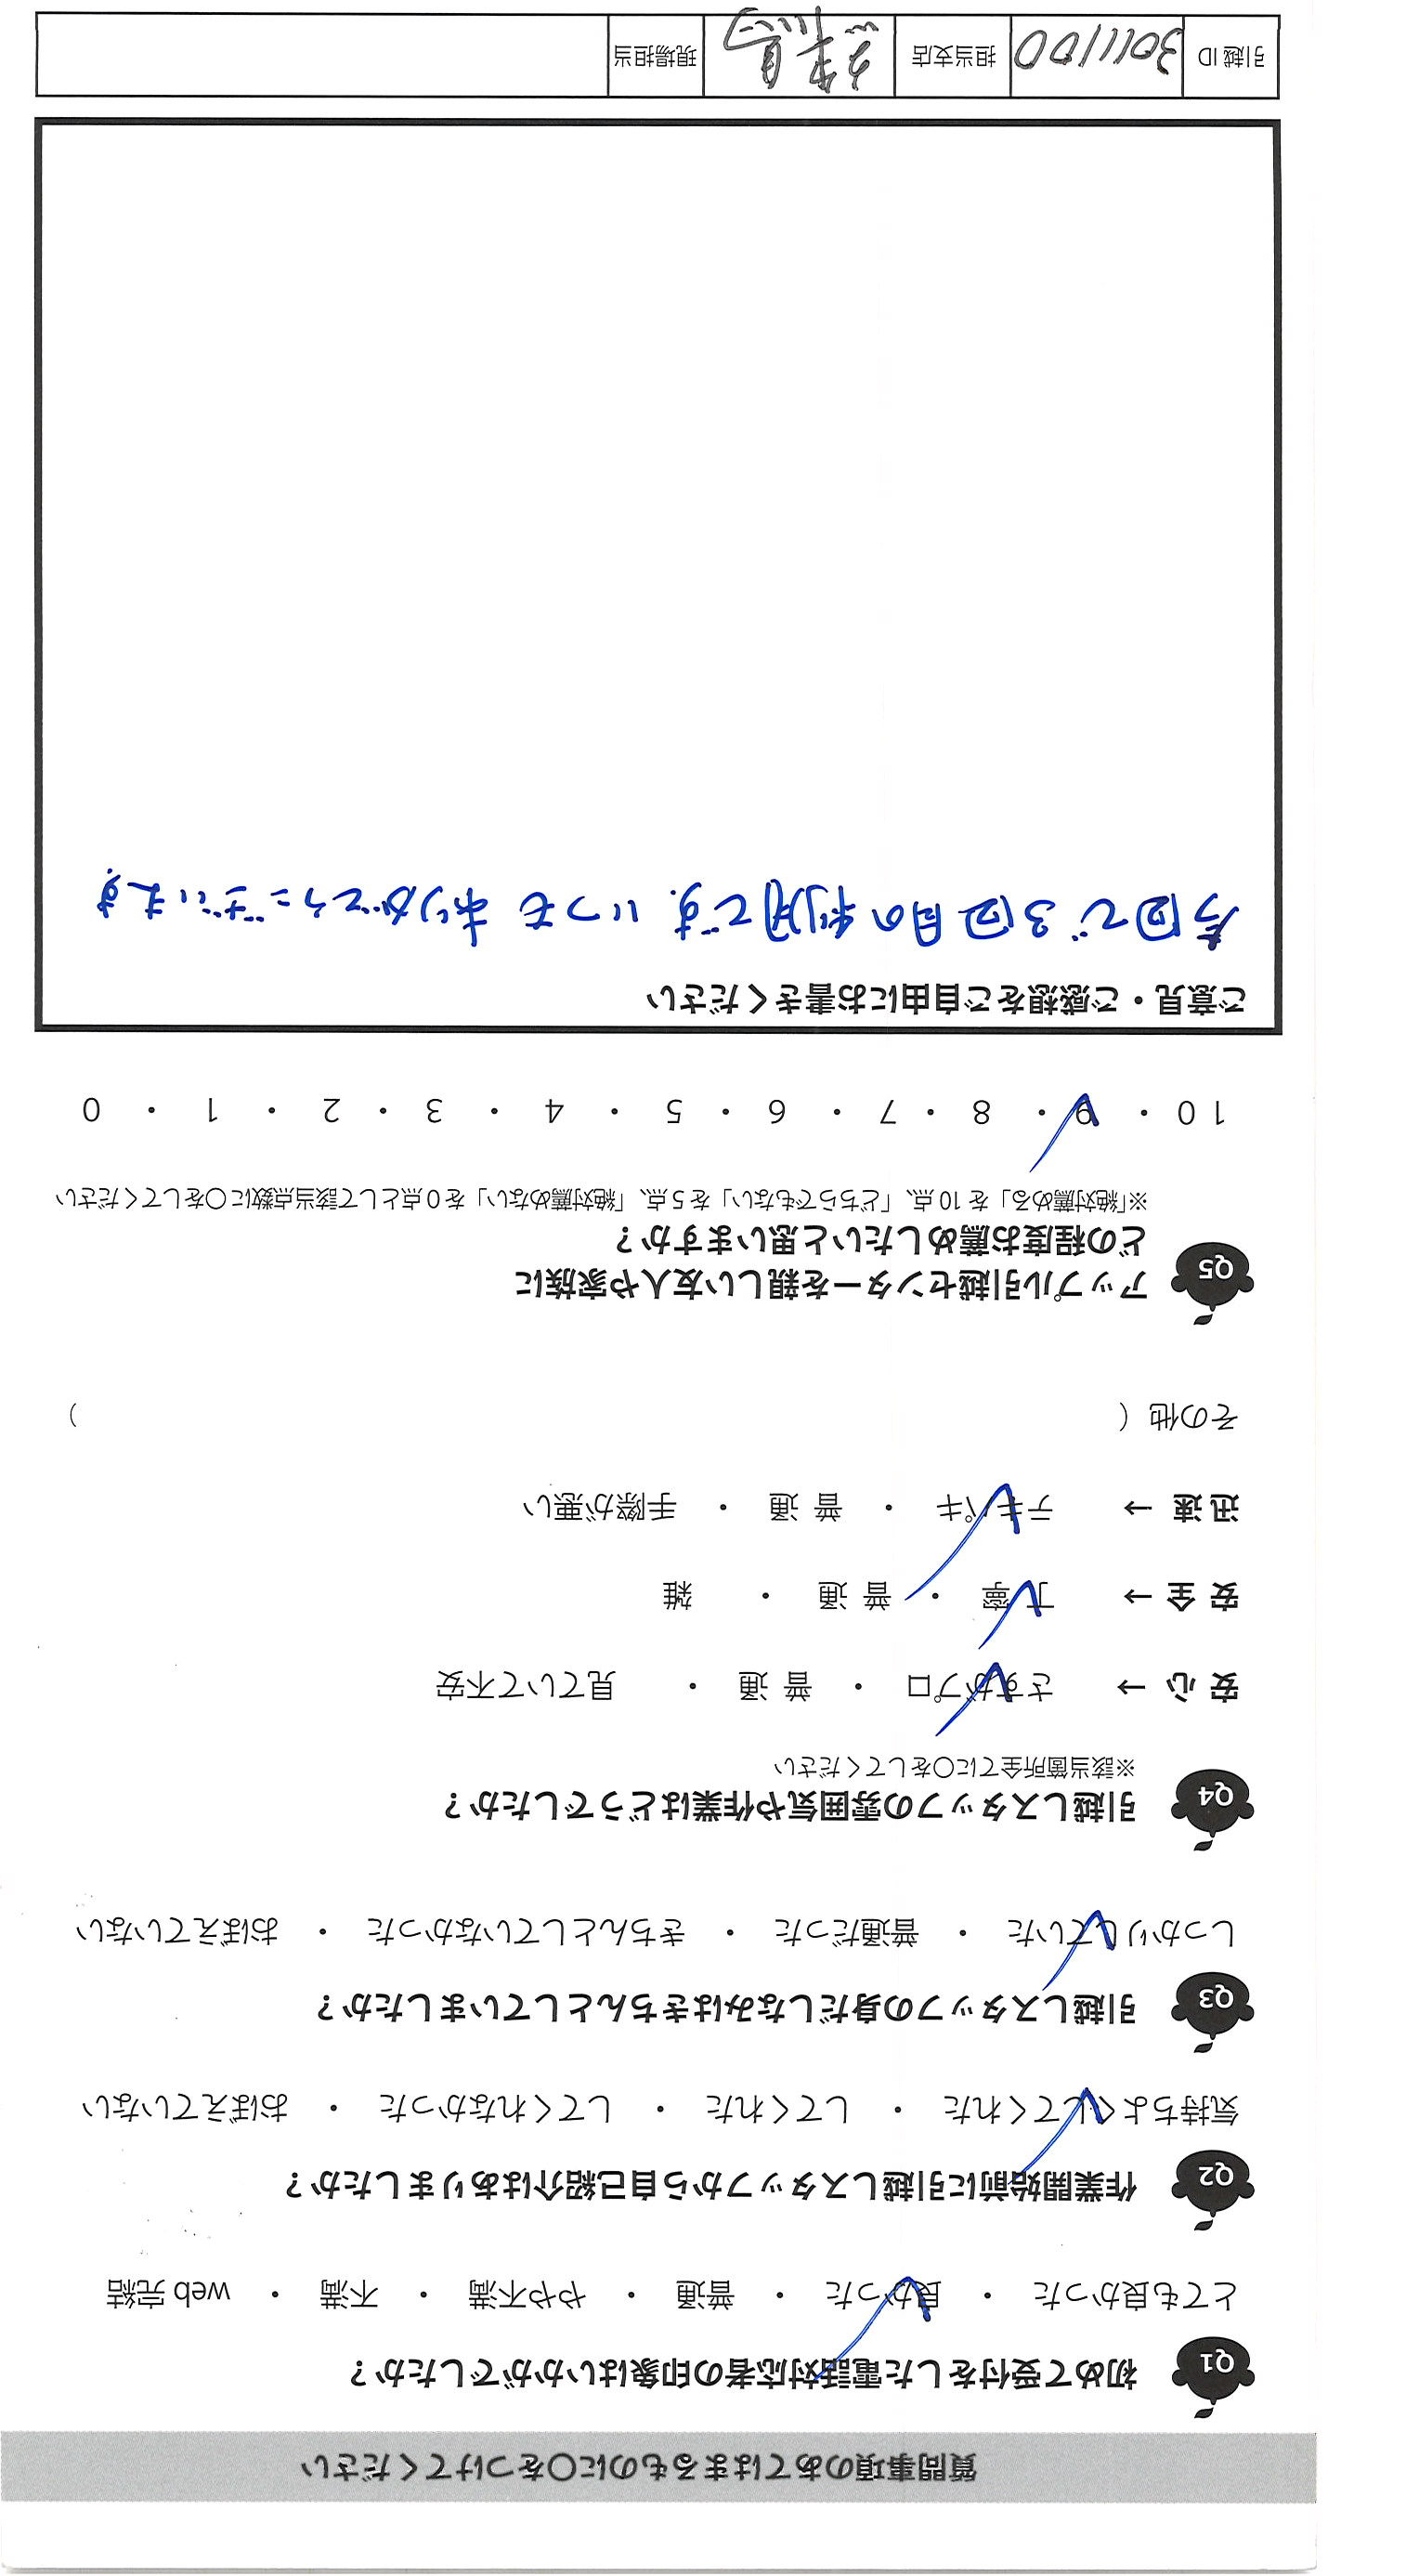 質問事項のあてはまるものに〇をつけてください
Q1 初めて受付をした電話対応者の印象はいかがでしたか？
とても良かった ・ 良かった ・ 普通 ・ やや不満 ・ 不満 ・ web 完結
Q2 作業開始前に引越しスタッフから自己紹介はありましたか？
気持ちよくしてくれた ・ してくれた ・ してくれなかった ・ おぼえていない
Q3 引越しスタッフの身だしなみはきちんとしていましたか？
しっかりしていた ・ 普通だった ・ きちんとしていなかった ・ おぼえていない
Q4 引越しスタッフの雰囲気や作業はどうでしたか？
※該当箇所全てに〇をしてください
安 心 → さすがプロ ・ 普 通 ・ 見ていて不安
安 全 → 丁 寧 ・ 普 通 ・ 雑
迅 速 → テキパキ ・ 普 通 ・ 手際が悪い
その他（ ）
Q5 アップル引越センターを親しい友人や家族に
どの程度お薦めしたいと思いますか？
※「絶対薦める」を 10 点、「どちらでもない」を 5 点、「絶対薦めない」を 0 点として該当点数に〇をしてください
10 ・ 9 ・ 8 ・ 7 ・ 6 ・ 5 ・ 4 ・ 3 ・ 2 ・ 1 ・ 0
ご意見・ご感想をご自由にお書きください
今回で3回目の利用です。いつも ありがとうございます
引越 ID 3011100 担当支店 現場担当